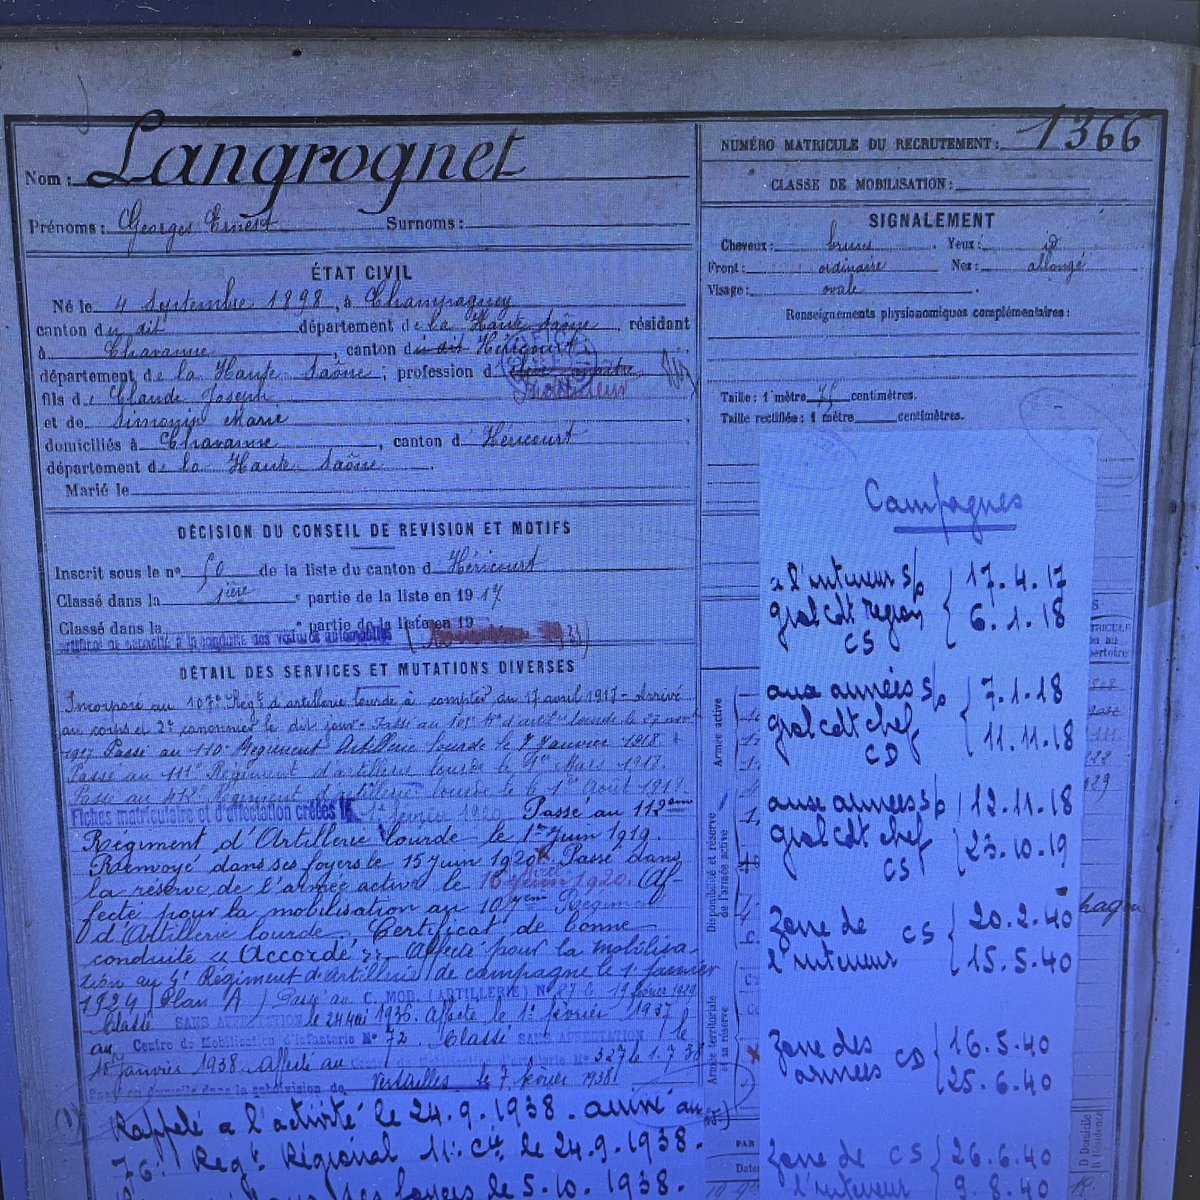 Nom : Langrognet
Prénoms : Georges Ernest Surnoms :
ÉTAT CIVIL
Né le 4 Septembre 1898, à Champagney
canton du dit département de la Haute Saône, résidant
à Chavanne, canton du dit Héricourt
département de la Haute Saône ; profession d
fils de Claude Joseph
et de Simonin Marie
domiciliés à Chavanne, canton d' Héricourt
département de la Haute Saône.
Marié le
DÉCISION DU CONSEIL DE REVISION ET MOTIFS
Inscrit sous le n° 50 de la liste du canton d Héricourt
Classé dans la 1ière partie de la liste en 1917
Classé dans la partie de la liste en 19
DÉTAIL DES SERVICES ET MUTATIONS DIVERSES
Incorporé au 107e Régt d'artillerie lourde à compter du 17 avril 1917 - Arrivé
au corps et 2e canonnier le dit jour. Passé au d'artie lourde le
1917 Passé au 110e Régiment Artillerie lourde le 7 Janvier 1918
Passé au 111e Régiment d'artillerie lourde le 1er Mars 1918.
Passé au Régiment d'artillerie lourde le 1er Août 1918.
Fiches matricule et d'affectation créées le 1er février 1920 Passé au 112eme
Régiment d'Artillerie lourde le 1er Juin 1919.
Renvoyé dans ses foyers le 15 juin 1920. Passé dans
la réserve de l'armée active le 1920. Af-
fecté pour la mobilisation au 107eme Régiment
d'Artillerie lourde. Certificat de bonne
conduite "Accordé". Affecté pour la mobilisa-
tion au Régiment d'artillerie de campagne le 1er janvier
1924 (Plan A) Passé au C. MOB. (ARTILLERIE) N° 87 le 19 février 1929
Classé SANS AFFECTATION le 24 mai 1935. Affecté le 1er février 1937
au Centre de Mobilisation d'Infanterie N° 72. Classé SANS AFFECTATION le
18 janvier 1938. Affecté au N° 327 le 1.7.38
dans la subdivision de Versailles le 7 février 1938.
(1) Rappelé à l'activité le 24.9.1938. arrivé au
76e Regt Régional 11e Cie le 24.9.1938.
le 5.10.1938.
NUMÉRO MATRICULE DU RECRUTEMENT : 1366
CLASSE DE MOBILISATION :
SIGNALEMENT
Cheveux : bruns. Yeux : id
Front : ordinaire Nez : allongé
Visage : ovale.
Renseignements physionomiques complémentaires :
Taille : 1 mètre 75 centimètres.
Taille rectifiée : 1 mètre centimètres.
Campagnes
à l'intérieur s/o { 17.4.17
gral cdt region { 6.1.18
CS
aux armées s/o { 7.1.18
gral cdt chef { 11.11.18
CD
aux armées s/o { 12.11.18
gral cdt chef { 23.10.19
CS
Zone de CS { 20.2.40
l'intérieur { 15.5.40
Zone des CD { 16.5.40
armées { 25.6.40
Zone de CS { 26.6.40
l'intérieur { 9.8.40
Armée active
Disponibilité et réserve
de l'armée active
Armée territoriale
et sa réserve
D Domicile
R Résidence